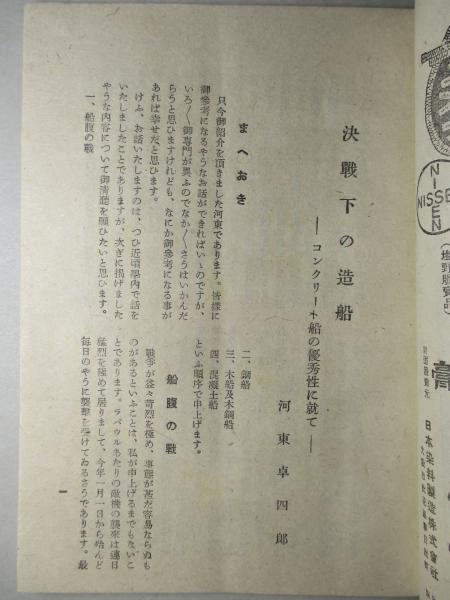 決戰下の造船
―コンクリート船の優秀性に就て―
河東卓四郎
まへおき
只今御紹介を頂きました河東であります。皆樣に
御參考になるやうなお話ができればいゝのですが、
いろ〱御專門が異ふのでなか〱さうはいかんだ
らうと思ひますけれども、なにか御參考になる事が
あれば幸せだと思ひます。
けふ、お話いたしますのは、つひ近頃學內で話を
いたしましたことでありますが、次ぎに揭げました
やうな內容について御淸聽を願ひたいと思ひます。
一、船腹の戰
二、鋼船
三、木船及木鋼船
四、混凝土船
といふ順序で申上げます。
船腹の戰
戰爭が益々苛烈を極め、事態が甚だ容易ならぬも
のがあるといふことは、私が申上げるまでもないこ
とであります。ラバウルあたりの敵機の襲來は連日
猛烈を極めて居りまして、今年一月一日から殆んど
每日のやうに襲擊を受けてゐるさうであります。最
一
NISSEN
NISSEN
日本染料製造株式會社